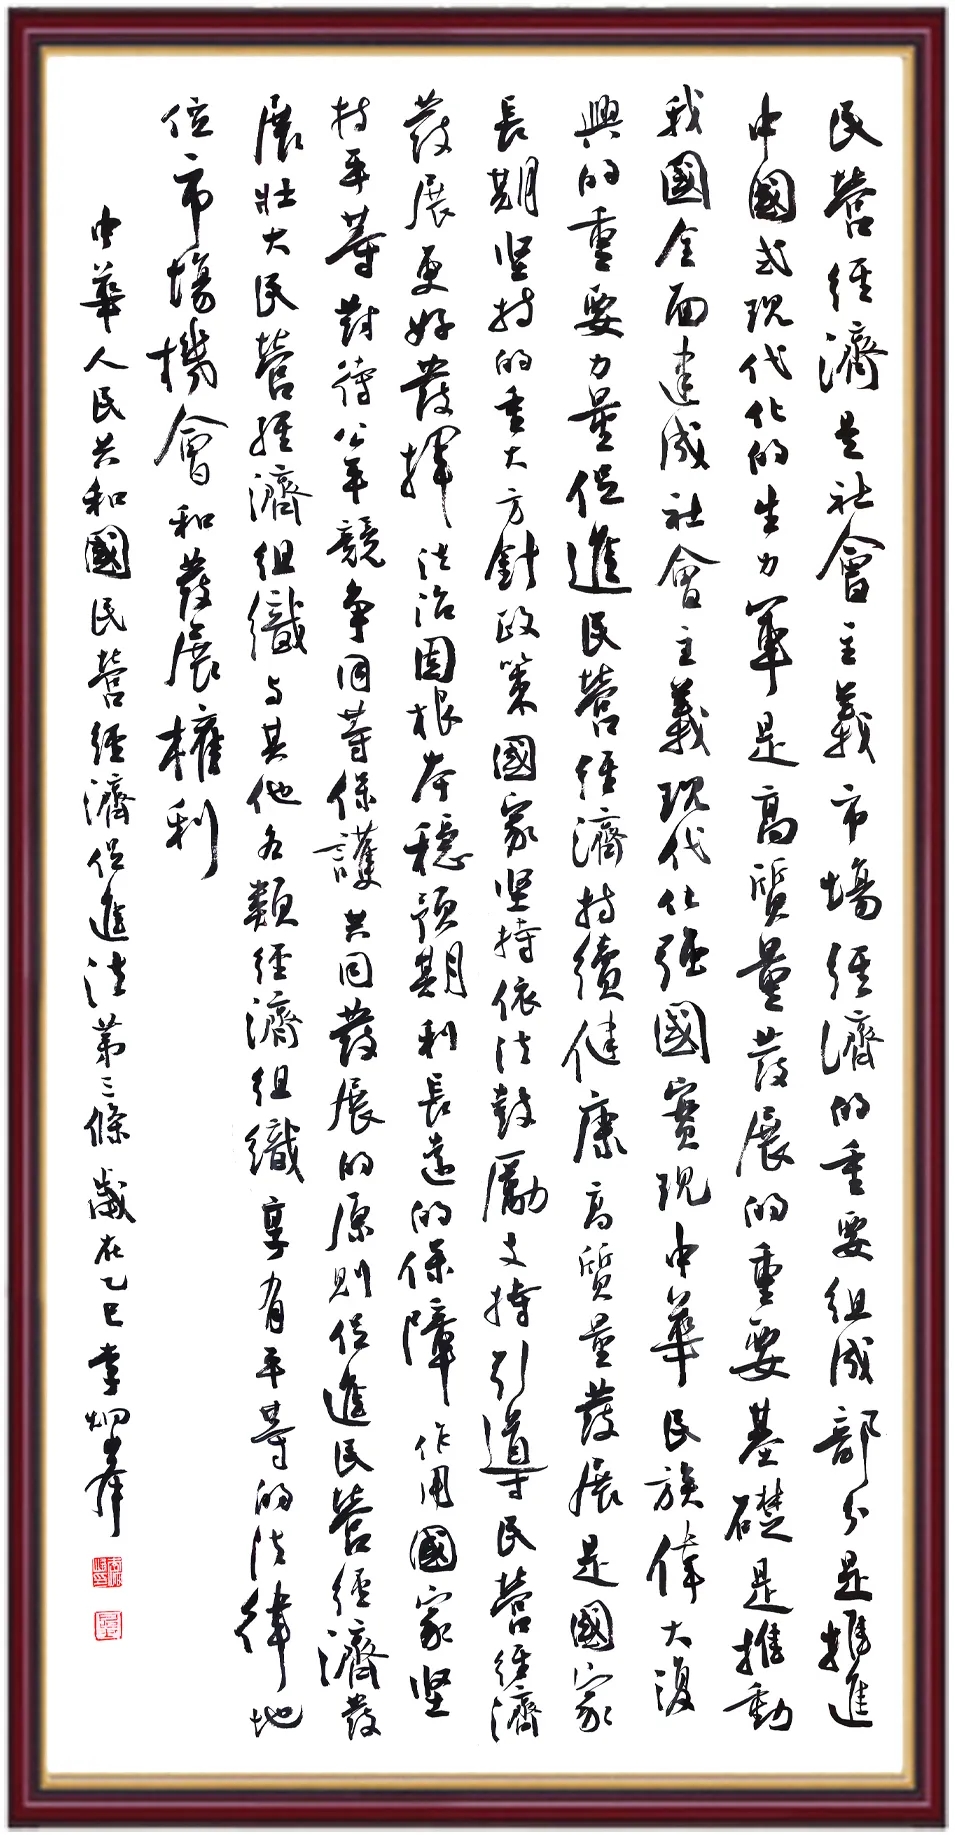 民營經濟是社會主義市場經濟的重要組成部分是推進
中國式現代化的生力軍是高質量發展的重要基礎是推動
我國全面建成社會主義現代化強國實現中華民族偉大復
興的重要力量促進民營經濟持續健康高質量發展是國家
長期坚持的重大方針政策國家坚持依法鼓勵支持引導民營經濟
發展更好發揮法治固根本穩預期利長遠的保障作用國家坚
持平等對待公平競爭同等保護共同發展的原則促進民營經濟發
展壯大民營經濟組織与其他各類經濟組織享有平等的法律地
位市場機會和發展權利
中華人民共和國民營經濟促進法第三條歲在乙巳李炯峯